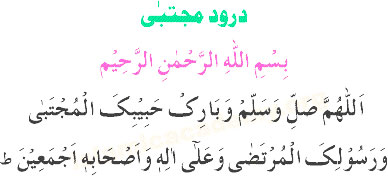 درود مجتبٰی
بِسْمِ اللهِ الرَّحْمٰنِ الرَّحِیْمِ
اَللّٰهُمَّ صَلِّ وَسَلِّمْ وَبَارِکْ حَبِیْبِکَ الْمُجْتَبٰی
وَرَسُوْلِکَ الْمُرْتَضٰی وَعَلٰٓی اٰلِهٖ وَاَصْحَابِهٖ اَجْمَعِیْنَ ط